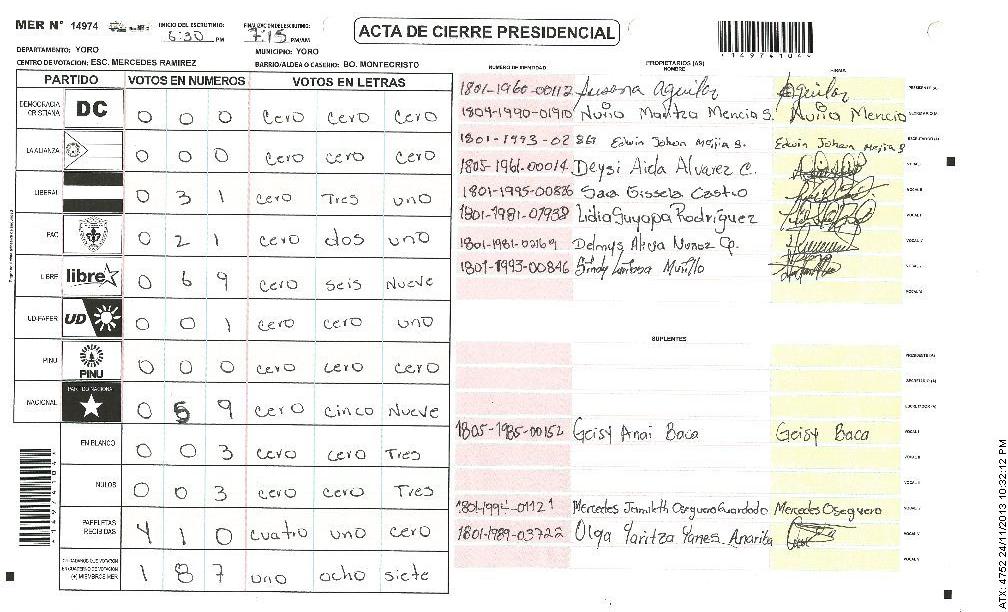 MER N° 14974 INICIO DEL ESCRUTINIO: 6:30 PM FINALIZACION DEL ESCRUTINIO: 7:15 PM/AM
ACTA DE CIERRE PRESIDENCIAL
DEPARTAMENTO: YORO MUNICIPIO: YORO
CENTRO DE VOTACION: ESC. MERCEDES RAMIREZ BARRIO/ALDEA O CASERIO: BO. MONTECRISTO
PARTIDO VOTOS EN NUMEROS VOTOS EN LETRAS
DEMOCRACIA CRISTIANA DC 0 0 0 cero cero cero
LA ALIANZA 0 0 0 cero cero cero
LIBERAL 0 3 1 cero Tres uno
PAC 0 2 1 cero dos uno
LIBRE libre 0 6 9 cero seis Nueve
UD-FAPER UD 0 0 1 cero cero uno
PINU PINU 0 0 0 cero cero cero
NACIONAL PARTIDO NACIONAL 0 5 9 cero cinco Nueve
EN BLANCO 0 0 3 cero cero Tres
NULOS 0 0 3 cero cero Tres
PAPELETAS RECIBIDAS 4 1 0 cuatro uno cero
CIUDADANOS QUE VOTARON EN CUADERNO DE VOTACION (+) MIEMBROS MER 1 8 7 uno ocho siete
NUMERO DE IDENTIDAD PROPIETARIOS (AS) NOMBRE FIRMA
1801-1960-00112 Susana Aguilar Aguilar
1804-1990-01910 Nuria Maritza Mencia S. Nuria Mencia
1801-1993-02 Edwin Johan Mejia S. Edwin Johan Mejia S
1805-1961-00014 Deysi Aida Alvarez C.
1801-1995-00826 Sara Gissela Castro
1801-1981-01938 Lidia Guyapa Rodríguez
1801-1981-00169 Delmys Alicia Nunez
1801-1993-00846 Sindy Murillo
SUPLENTES
1805-1985-00152 Geisy Anai Baca Geisy Baca
1801-1994-01121 Mercedes Jamileth Oseguera Guardado Mercedes Oseguera
1801-1989-03722 Olga Yaritza Yanes Anariba
*14974104*
ATX: 4752 24/11/2013 10:32:12 PM